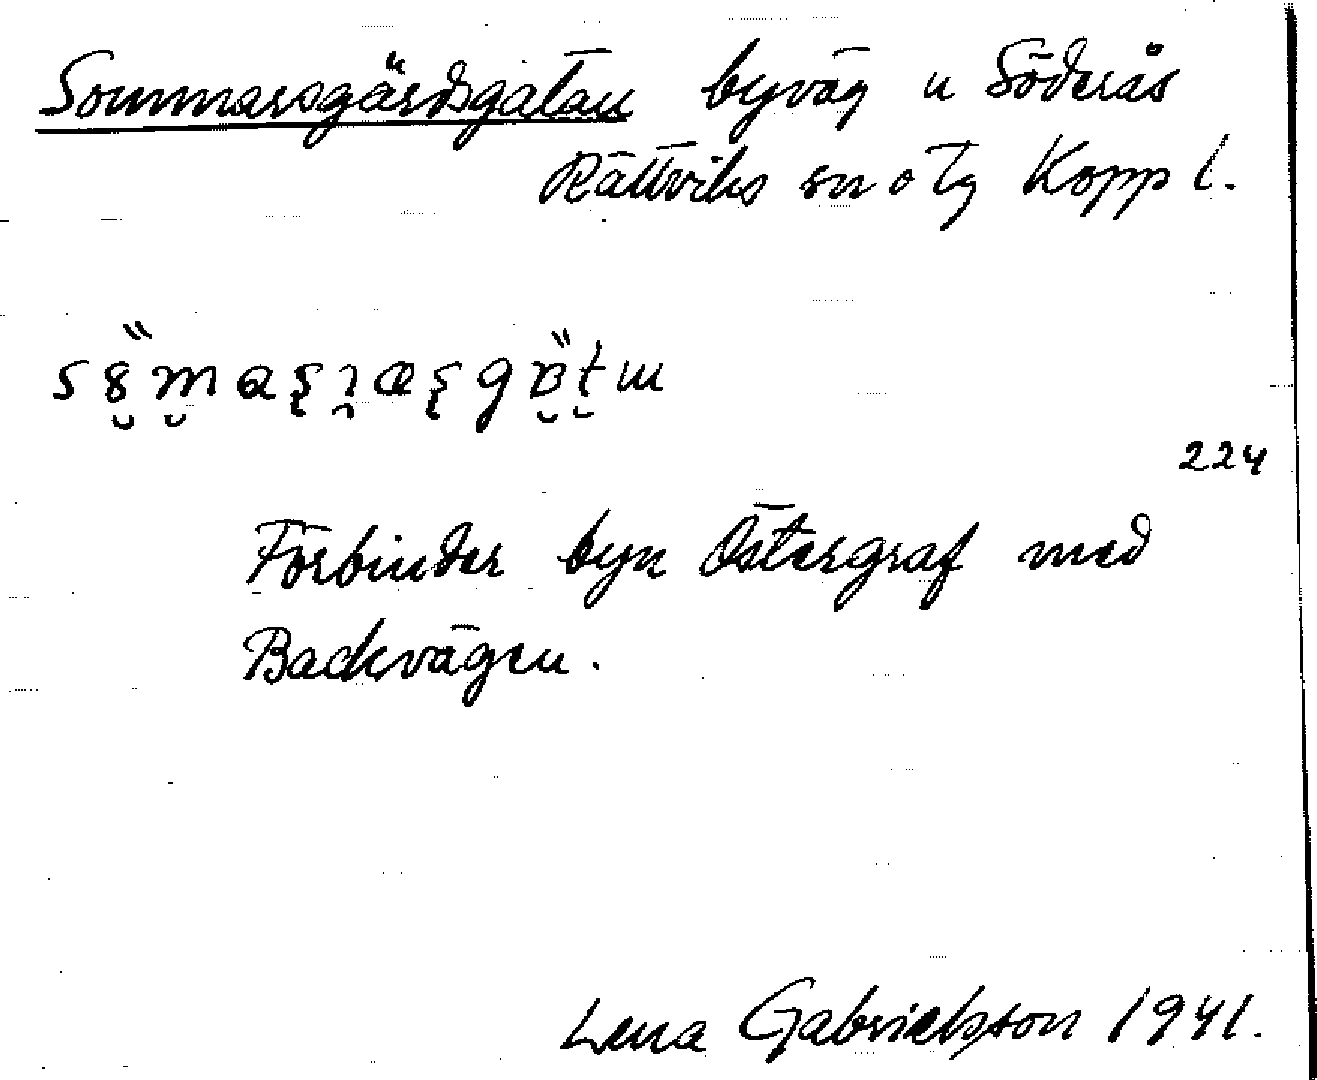 Sommarsgärdsgatan byväg u Söderås
Rättviks sn o tg Kopp l.
224
Förbinder byn Östergraf med
Backvägen.
Lena Gabrielsson 1941.